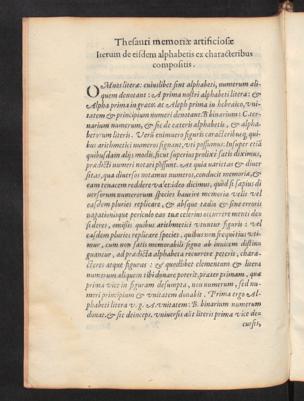 Thesauri memoriæ artificiosæ
Iterum de eisdem alphabetis ex characteribus
compositis.
OMnes literæ cuiuslibet sint alphabeti, numerum ali
quem denotant: A prima nostri alphabeti litera: &
Alpha prima in græco: at Aleph prima in hebraico, vni-
tatem & principium numeri denotant. B binarium: C ter-
narium numerum, & sic de cæteris alphabetis, & alpha-
betorum literis. Verū enimuero figuris characteribusq; qui-
bus arithmetici numeros signant, vti possumus. Insuper etiā
quibusdam alijs modis, sicut superius prolixè satis diximus,
prædicti numeri notari possunt. At quia varietas & diuer
sitas, qua diuersos notamus numeros, conducit memoriæ, &
eam tenacem reddere valet: ideo dicimus, quòd si sæpius di
uersorum numerorum species haurire memoria velis vel
easdem pluries replicare, & absque tædio & sine erroris
euagationisque periculo eas tuæ celerius occurrere menti desi
deres, omissis quibus arithmetici vtuntur figuris: vel
easdem pluries replicare species, quibus non frequētius vti-
mur, cum non satis memorabili signo ab inuicem distin
guantur, ad prædicta alphabeta recurrere poteris, chara-
cteres atque figuras: & quodlibet elementum & litera
numerum aliquem tibi donare poterit. præter primam, quæ
prima vice in figuram desumpta, non numerum, sed nu-
meri principium & vnitatem donabit. Prima ergo Al-
phabeti litera v. g. A vnitatem: B. binarium numerum
donat, & sic deinceps. vniuersis aūt literis prima vice de-
cursis,